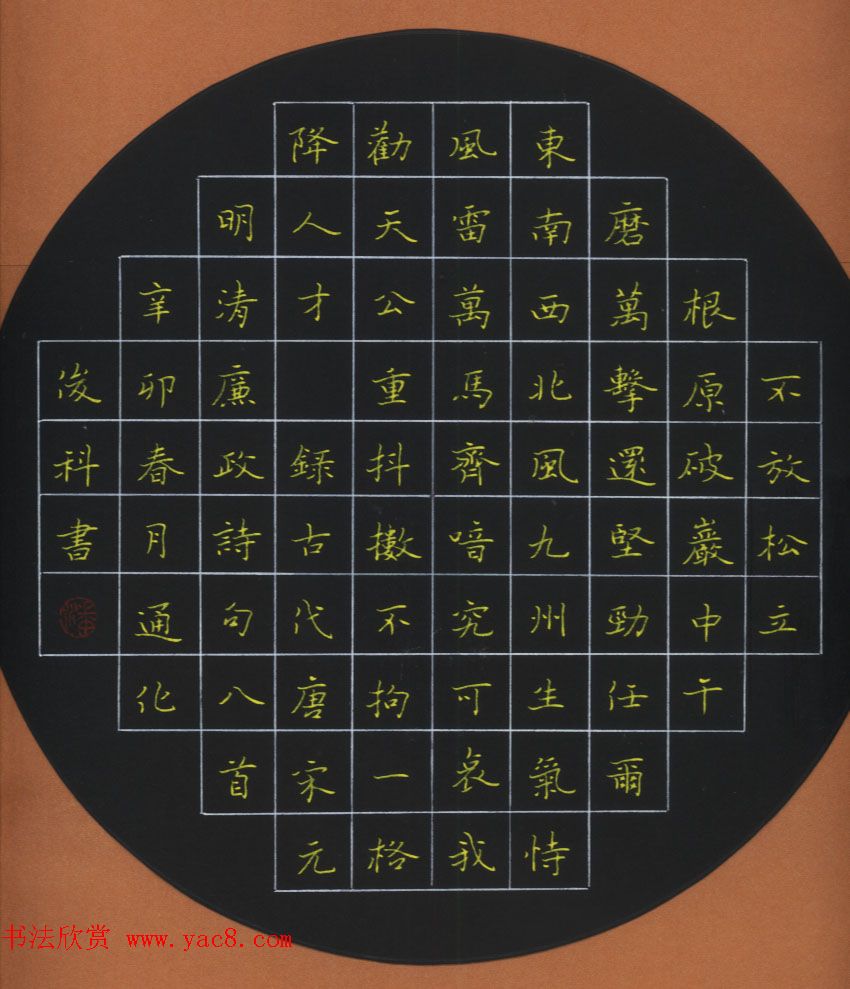 不放松立
根原破巖中千
磨萬擊還堅勁任爾
東南西北風九州生氣恃
風雷萬馬齊喑究可哀我
勸天公重抖擻不拘一格
降人才 録古代唐宋元
明清廉政詩句八首
辛卯春月通化
俊科書
书法欣赏 www.yac8.com